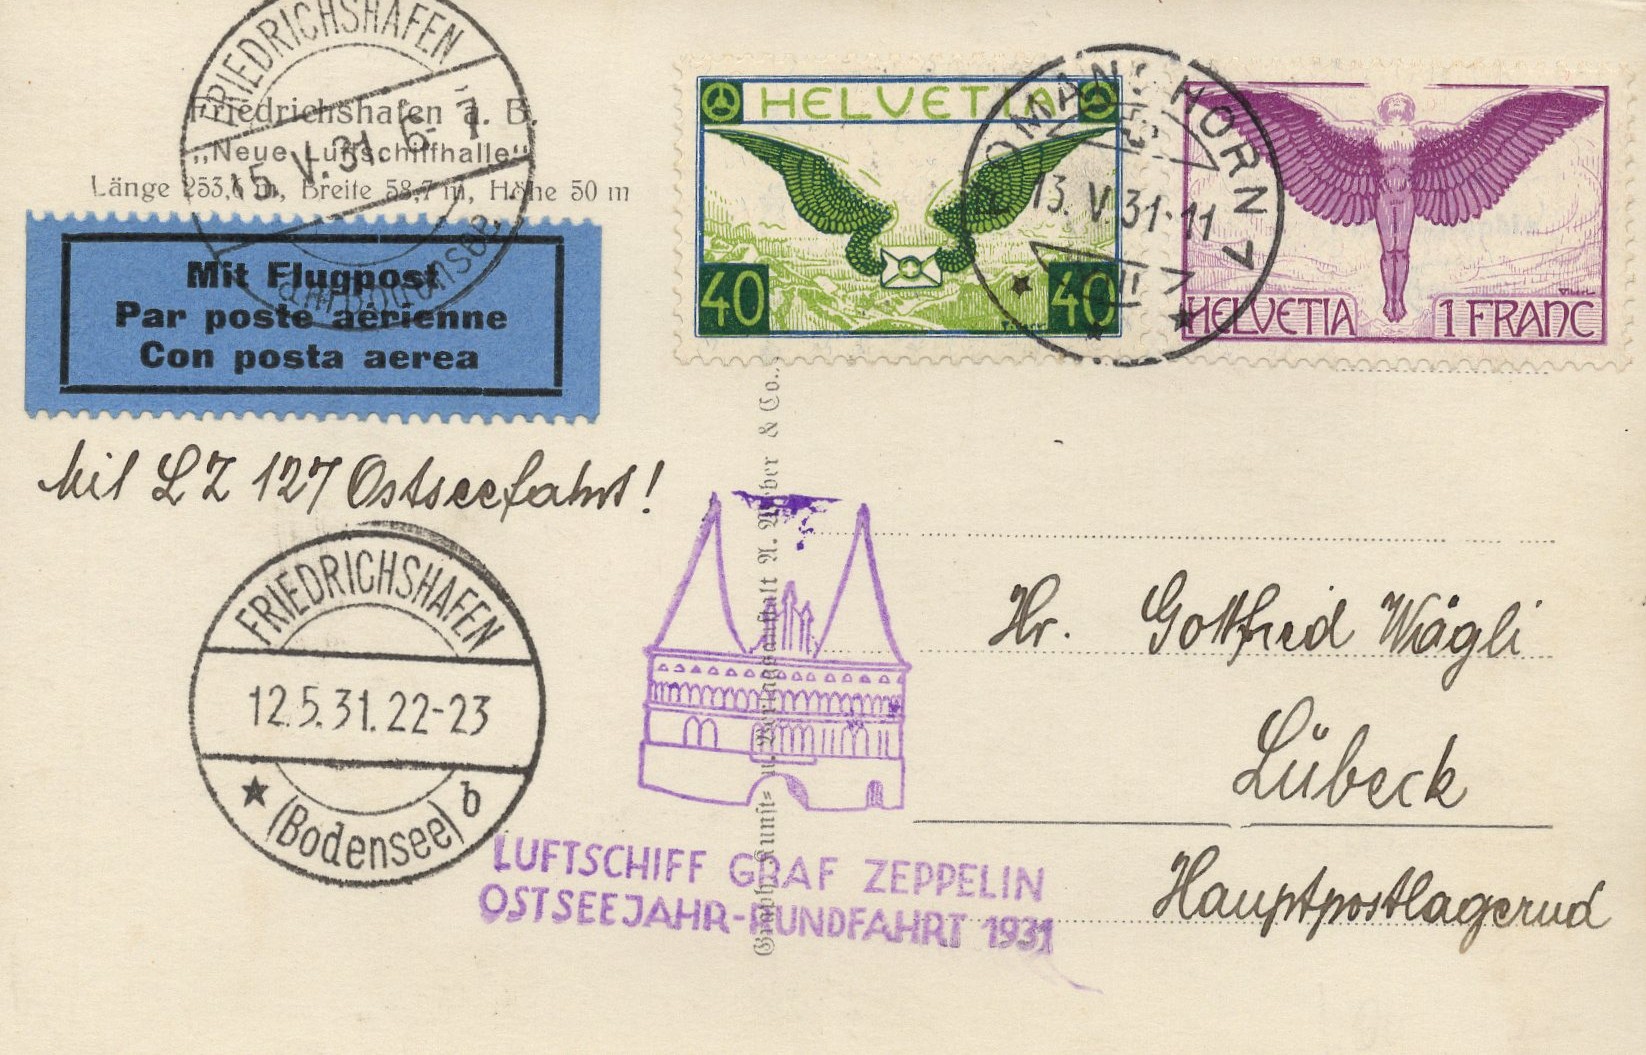 Friedrichshafen a. B.
„Neue Luftschiffhalle“
Länge 253,6 m, Breite 58,7 m, Höhe 50 m
FRIEDRICHSHAFEN
15.V.31. 6-7
Mit Flugpost
Par poste aérienne
Con posta aerea
HELVETIA
40
40
ROMANSHORN
13.V.31-11
HELVETIA 1 FRANC
Mit LZ 127 Ostseefahrt!
FRIEDRICHSHAFEN
12.5.31.22-23
(Bodensee) b
Hr. Gottfried Wägli
Lübeck
Hauptpostlagernd
LUFTSCHIFF GRAF ZEPPELIN
OSTSEEJAHR-RUNDFAHRT 1931
Kunst- u. Verlagsanstalt A. Weber & Co.,